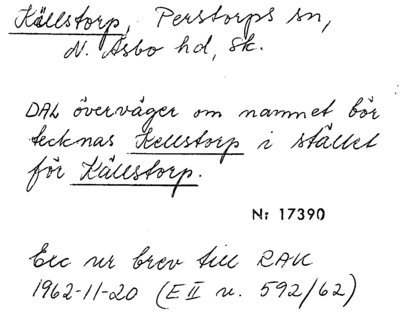 Källstorp, Perstorps sn,
N. Åsbo hd, Sk.
DAL överväger om namnet bör
tecknas Kellstorp i stället
för Källstorp.
Nr 17390
Exc ur brev till RAK
1962-11-20 (E II u. 592/62)